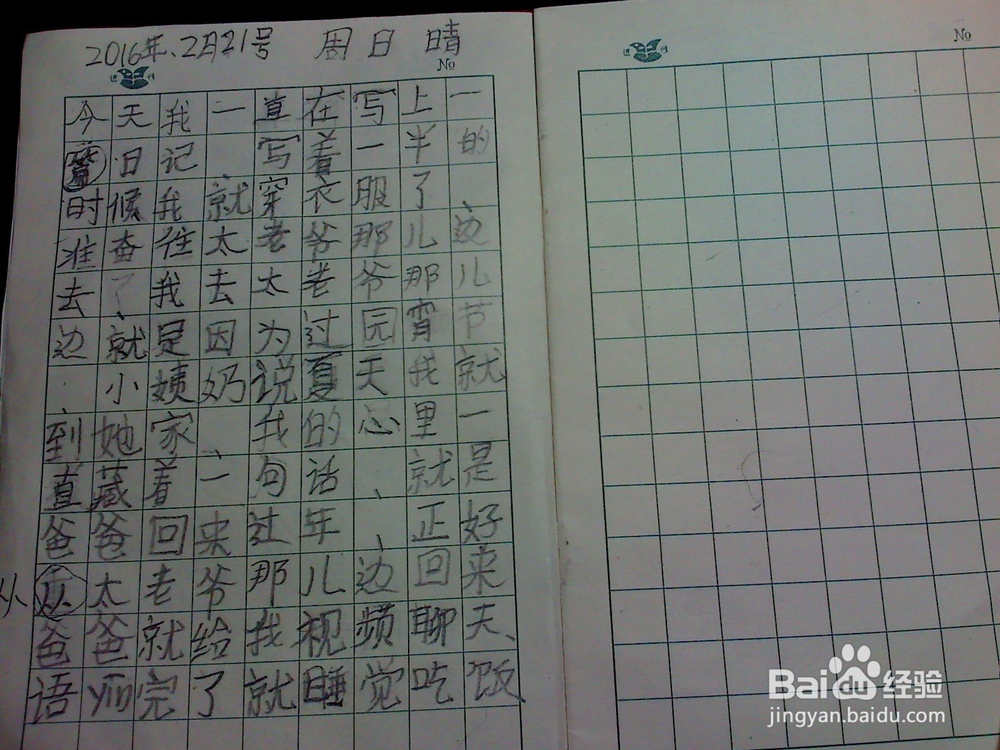 2016年、2月21号 周日 晴
No
No
今天我一直在写上一
篇日记 写着一半的
时候我就穿衣服了、
准奋往太老爷那儿边
去了、我去太老爷那儿
边就是因为过园宵节
、小姨奶说夏天我就
到她家、我的心里一
直藏着一句话、就是
爸爸回来过年、正好
从太老爷那儿边回来
爸爸就给我视频聊天、
语完了就睡觉吃饭
Baidu经验
jingyan.baidu.com